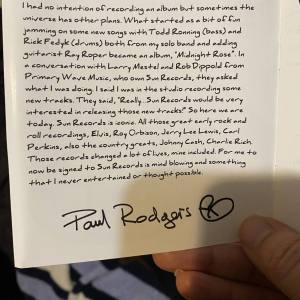 I had no intention of recording an album but sometimes the
universe has other plans. What started as a bit of fun
jamming on some new songs with Todd Ronning (bass) and
Rick Fedyk (drums) both from my solo band and adding
guitarist Ray Roper became an album, "Midnight Rose". In
a conversation with Larry Mestel and Rob Dippold from
Primary Wave Music, who own Sun Records, they asked
what I was doing. I said I was in the studio recording some
new tracks. They said, "Really... Sun Records would be very
interested in releasing those new tracks!" So here we are
today. Sun Records is iconic. All those great early rock and
roll recordings, Elvis, Roy Orbison, Jerry Lee Lewis, Carl
Perkins, also the country greats, Johnny Cash, Charlie Rich.
Those records changed a lot of lives, mine included. For me to
now be signed to Sun Records is mind blowing and something
that I never entertained or thought possible.
Paul Rodgers